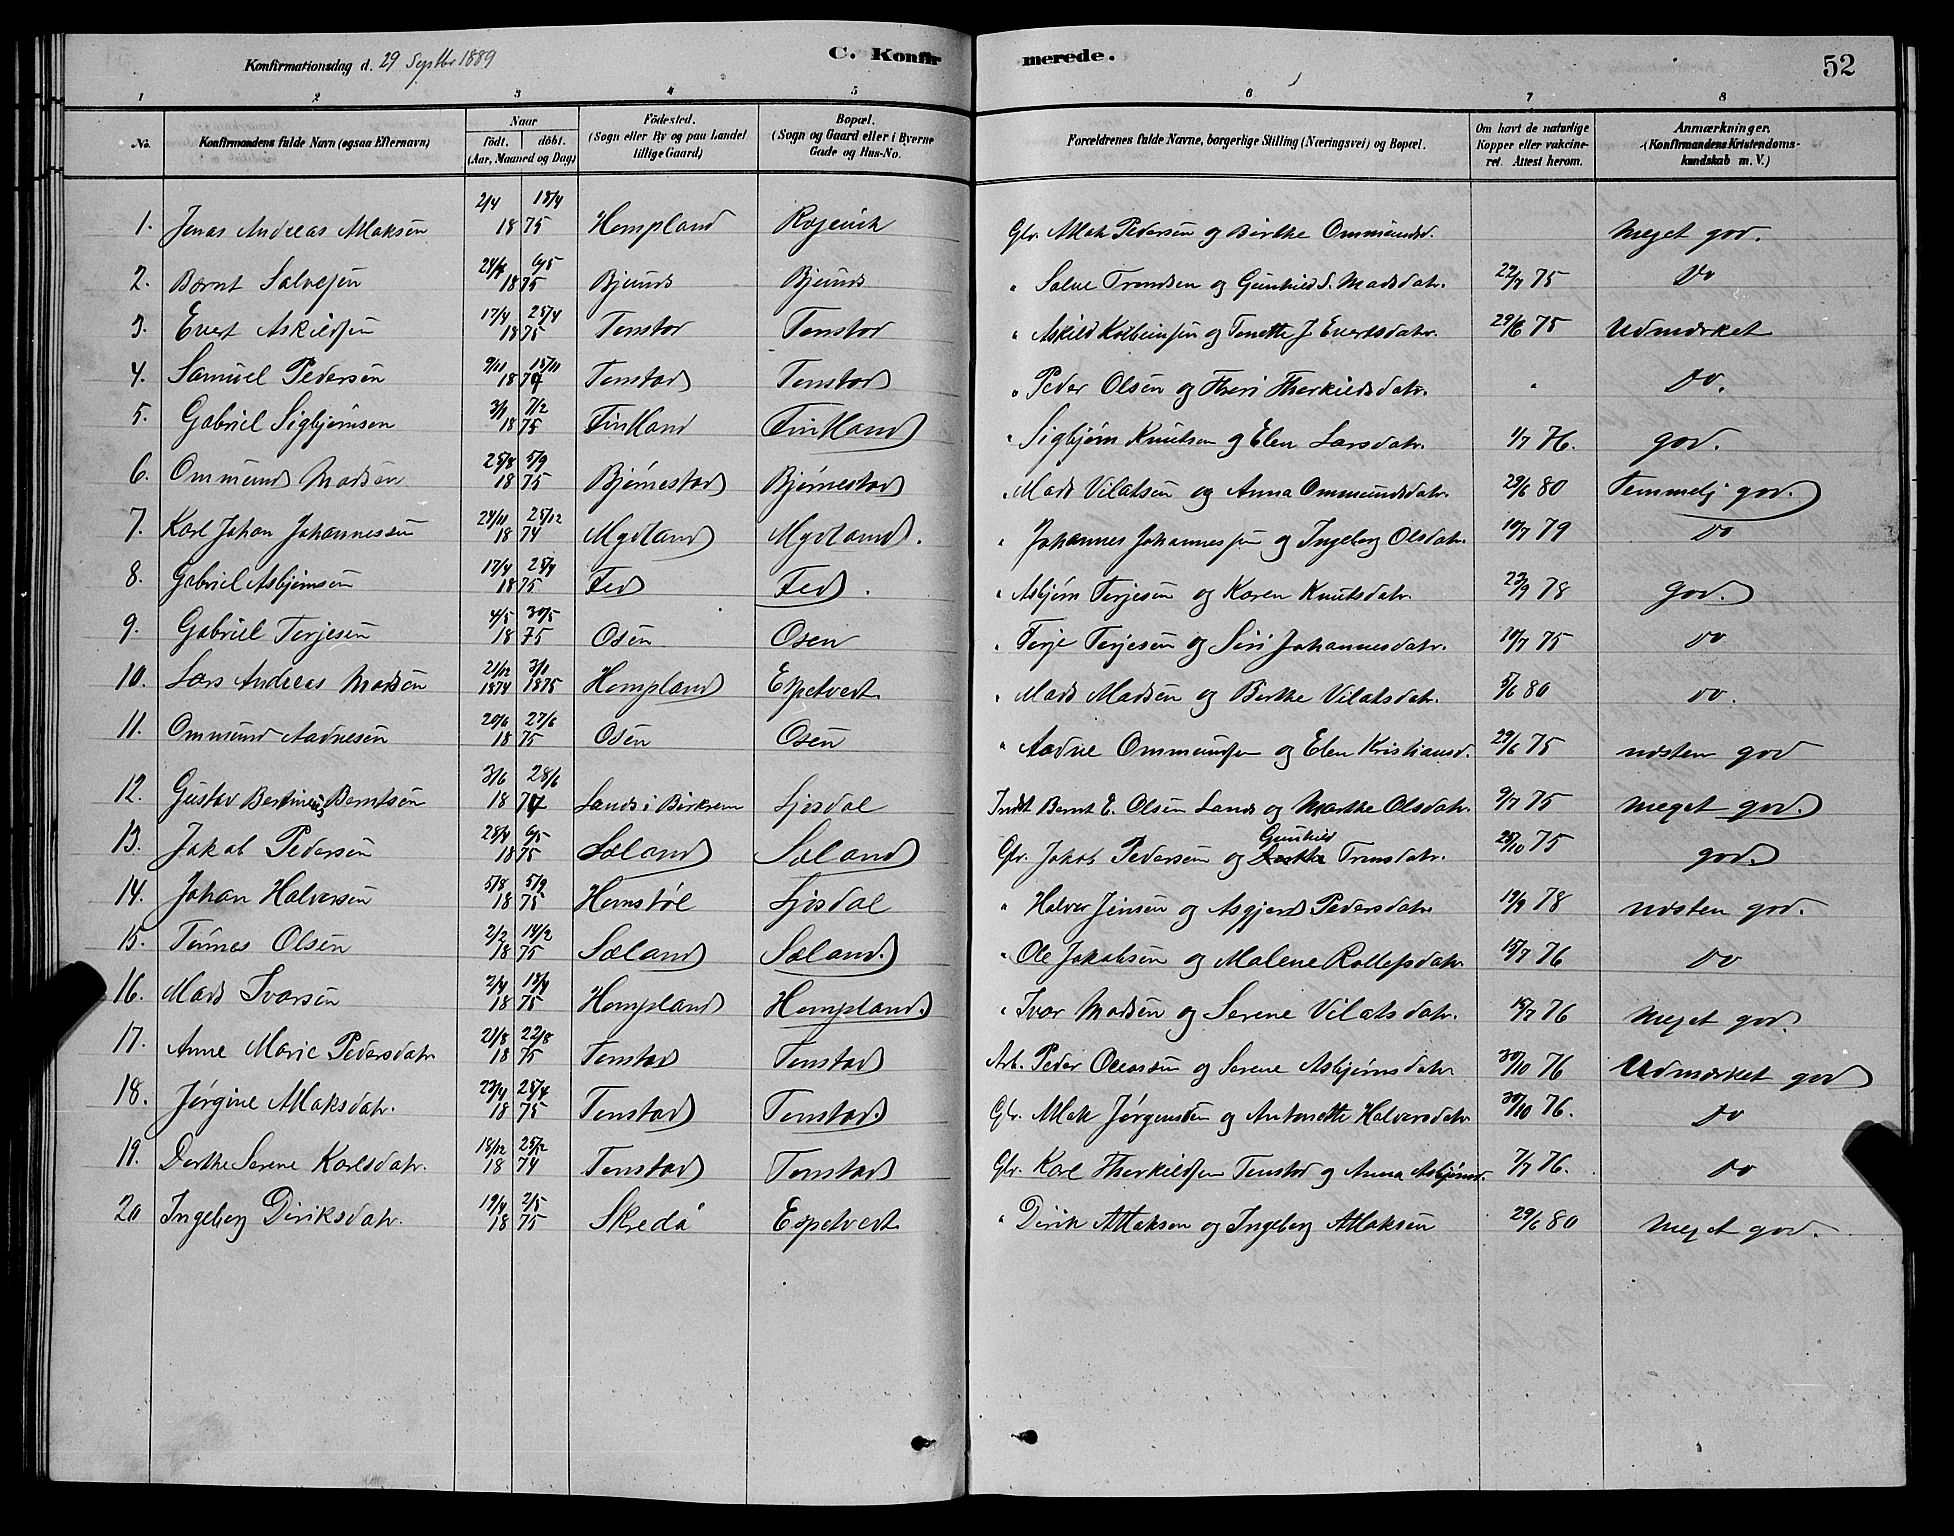 Konfirmationsdag d. 29 Septbr 1889 C. Konfirmerede. 52
1 2 3 4 5 6 7 8
No. Konfirmandens fulde Navn (ogsaa Efternavn) Naar født. døbt. (Aar, Maaned og Dag) Fødested. (Sogn eller By og paa Landet tillige Gaard) Bopæl. (Sogn og Gaard eller i Byerne Gade og Hus-No. Forældrenes fulde Navne, borgerlige Stilling (Næringsvei) og Bopæl. Om havt de naturlige Kopper eller vakcineret. Attest herom. Anmærkninger. (Konfirmandens Kristendomskundskab m. V.)
1. Jonas Andreas Atlaksen 2/4 18/4 1875 Hompland Gbr. Atlak Pedersen og Birthe Ommundsd. Meget god.
2. Bernt Salvesen 6/5 1875 Bjunds Bjunds " Salve Trondsen og Gunhild S. Madsdatr. 22/7 75 Do
3. Evert Askildsen 17/4 25/4 1875 Tonstad Tonstad " Askild Kolbeinsen og Tonette J Evertsdatr. 29/6 75 Udmærket
4. Samuel Pedersen 9/11 15/11 1874 Tonstad Tonstad " Peder Olsen og Theri Therkildsdatr. " Do.
5. Gabriel Sigbjørnsen 3/1 7/2 1875 Fintland Fintland " Sigbjørn Knutsen og Elen Larsdatr. 1/7 76. god.
6. Ommund Madsen 25/8 5/9 1875 Bjørnestad Bjørnestad " Mads Vilatsen og Anna Ommundsdatr. 29/6 80 Temmelj god.
7. Karl Johan Johannessen 24/11 25/12 1874 Mydland Mydland. " Johannes Johannessen og Ingeborg Olsdatr. 10/7 79 Do
8. Gabriel Asbjørnsen 17/4 25/4 1875 Fed Fed. " Asbjørn Terjesen og Karen Knutsdatr. 23/9 78 god.
9. Gabriel Terjesen 4/5 30/5 1875 Osen Osen " Terje Terjesen og Siri Johannesdatr. 10/7 75 Do
10. Lars Andreas Madsen 21/12 1874 3/1 1875 Hompland Espetvedt " Mads Madsen og Birthe Vilatsdatr. 5/6 80 Do.
11. Ommund Aadnesen 20/6 27/6 1875 Osen Osen " Aadne Ommundsen og Elen Kristiansd. 29/6 75 næsten god
12. Gustav Bertineus Berntsen 3/6 28/6 1874 Lands i Birkrem Ljosdal Indst. Bernt E. Olsen Lands og Marthe Olsdatr. 9/7 75 Meget god.
13. Jakob Pedersen 25/4 6/5 1875 Sæland Sæland Gbr. Jakob Pedersen og Gunhild Tronsdatr. 25/10 75 god.
14. Johan Halversen 5/8 5/9 1875 Homstøl Ljosdal " Halver Jensen og Asgjerd Pedersdatr 19/9 78 næsten god.
15. Tønnes Olsen 2/2 14/2 1875 Sæland Sæland. " Ole Jakobsen og Malene Rollefsdatr. 15/7 76 Do
16. Mads Ivarsen 2/4 18/4 1875 Hompland Hompland. " Ivar Madsen og Serene Vilatsdatr. 15/7 76 Meget god.
17. Anne Marie Pedersdatr. 21/8 22/8 1875 Tonstad Tonstad Arb. Peder Oleassen og Serene Asbjørnsdatr 30/10 76 Udmærket god
18. Jørgine Atlaksdatr. 23/4 25/4 1875 Tonstad Tonstad. Gbr. Atlak Jørgensen og Antonette Halversdatr. 30/10 76. Do
19. Dorthe Serene Karlsdatr. 18/12 25/12 1874 Tonstad Tonstad Gbr. Karl Therkildsen Tonstad og Anna Asbjørnsd. 7/7 76. Do
20 Ingeborg Diriksdatr. 19/4 2/5 1875 Skredå Espetvedt " Dirik Atlaksen og Ingeborg Atlaksen 29/6 80 Meget god.